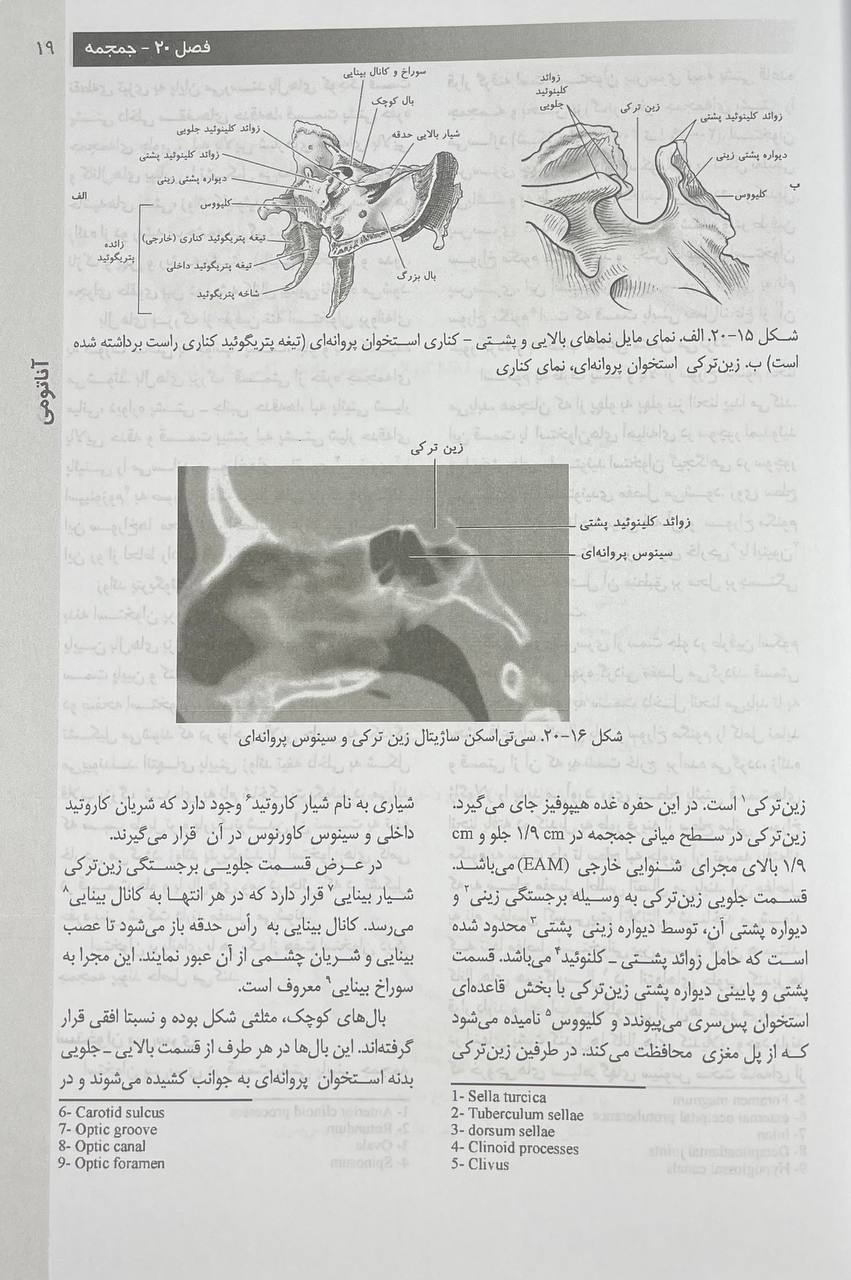 ۱۹
فصل ۲۰ - جمجمه
آناتومی
سوراخ و کانال بینایی
بال کوچک
زوائد کلینوئید جلویی
شیار بالایی حدقه
زوائد کلینوئید پشتی
دیواره پشتی زینی
الف
کلیووس
تیغه پتریگوئید کناری (خارجی)
زائده
پتریگوئید
تیغه پتریگوئید داخلی
شاخه پتریگوئید
بال بزرگ
زوائد
کلینوئید
جلویی
زین ترکی
زوائد کلینوئید پشتی
دیواره پشتی زینی
ب
کلیووس
شکل ۱۵-۲۰. الف. نمای مایل نماهای بالایی و پشتی - کناری استخوان پروانه‌ای (تیغه پتریگوئید کناری راست برداشته شده
است) ب. زین‌ترکی استخوان پروانه‌ای، نمای کناری
زین ترکی
زوائد کلینوئید پشتی
سینوس پروانه‌ای
شکل ۱۶-۲۰. سی‌تی‌اسکن ساژیتال زین ترکی و سینوس پروانه‌ای
زین‌ترکی۱ است. در این حفره غده هیپوفیز جای می‌گیرد.
زین‌ترکی در سطح میانی جمجمه در ۱/۹ cm جلو و cm
۱/۹ بالای مجرای شنوایی خارجی (EAM) می‌باشد.
قسمت جلویی زین‌ترکی به وسیله برجستگی زینی۲ و
دیواره پشتی آن، توسط دیواره زینی پشتی۳ محدود شده
است که حامل زوائد پشتی - کلنوئید۴ می‌باشد. قسمت
پشتی و پایینی دیواره پشتی زین‌ترکی با بخش قاعده‌ای
استخوان پس‌سری می‌پیوندد و کلیووس۵ نامیده می‌شود
که از پل مغزی محافظت می‌کند. در طرفین زین‌ترکی
1- Sella turcica
2- Tuberculum sellae
3- dorsum sellae
4- Clinoid processes
5- Clivus
شیاری به نام شیار کاروتید۶ وجود دارد که شریان کاروتید
داخلی و سینوس کاورنوس در آن قرار می‌گیرند.
در عرض قسمت جلویی برجستگی زین‌ترکی
شیار بینایی۷ قرار دارد که در هر انتها به کانال بینایی۸
می‌رسد. کانال بینایی به رأس حدقه باز می‌شود تا عصب
بینایی و شریان چشمی از آن عبور نمایند. این مجرا به
سوراخ بینایی۹ معروف است.
بال‌های کوچک، مثلثی شکل بوده و نسبتا افقی قرار
گرفته‌اند. این بال‌ها در هر طرف از قسمت بالایی - جلویی
بدنه استخوان پروانه‌ای به جوانب کشیده می‌شوند و در
6- Carotid sulcus
7- Optic groove
8- Optic canal
9- Optic foramen